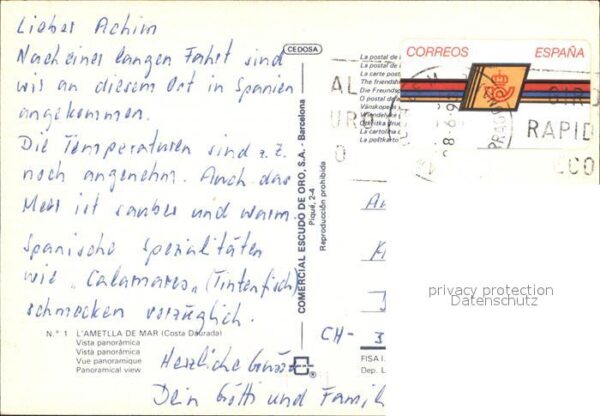 Lieber Achim
Nach einer langen Fahrt sind
wir an diesem Ort in Spanien
angekommen.
Die Temperaturen sind z.Z.
noch angenehm. Auch das
Meer ist sauber und warm.
Spanische Spezialitäten
wie "Calamares" (Tintenfisch)
schmecken vorzüglich.
Herzliche Grüsse
Dein Götti und Famil
N.º 1 L'AMETLLA DE MAR (Costa Daurada)
Vista panorámica
Vista panoràmica
Vue panoramique
Panoramical view
CEDOSA
COMERCIAL ESCUDO DE ORO, S.A. - Barcelona
Piqué, 2-4
Reproducción prohibida
®
La postal de
La postal de
La carte post
The friendsh
Die Freundsc
O postal de
La cartolina
CORREOS ESPAÑA
AL
URO
O
GIRO
RAPID
ECO
CH - 3
FISA I.
Dep. L
privacy protection
Datenschutz